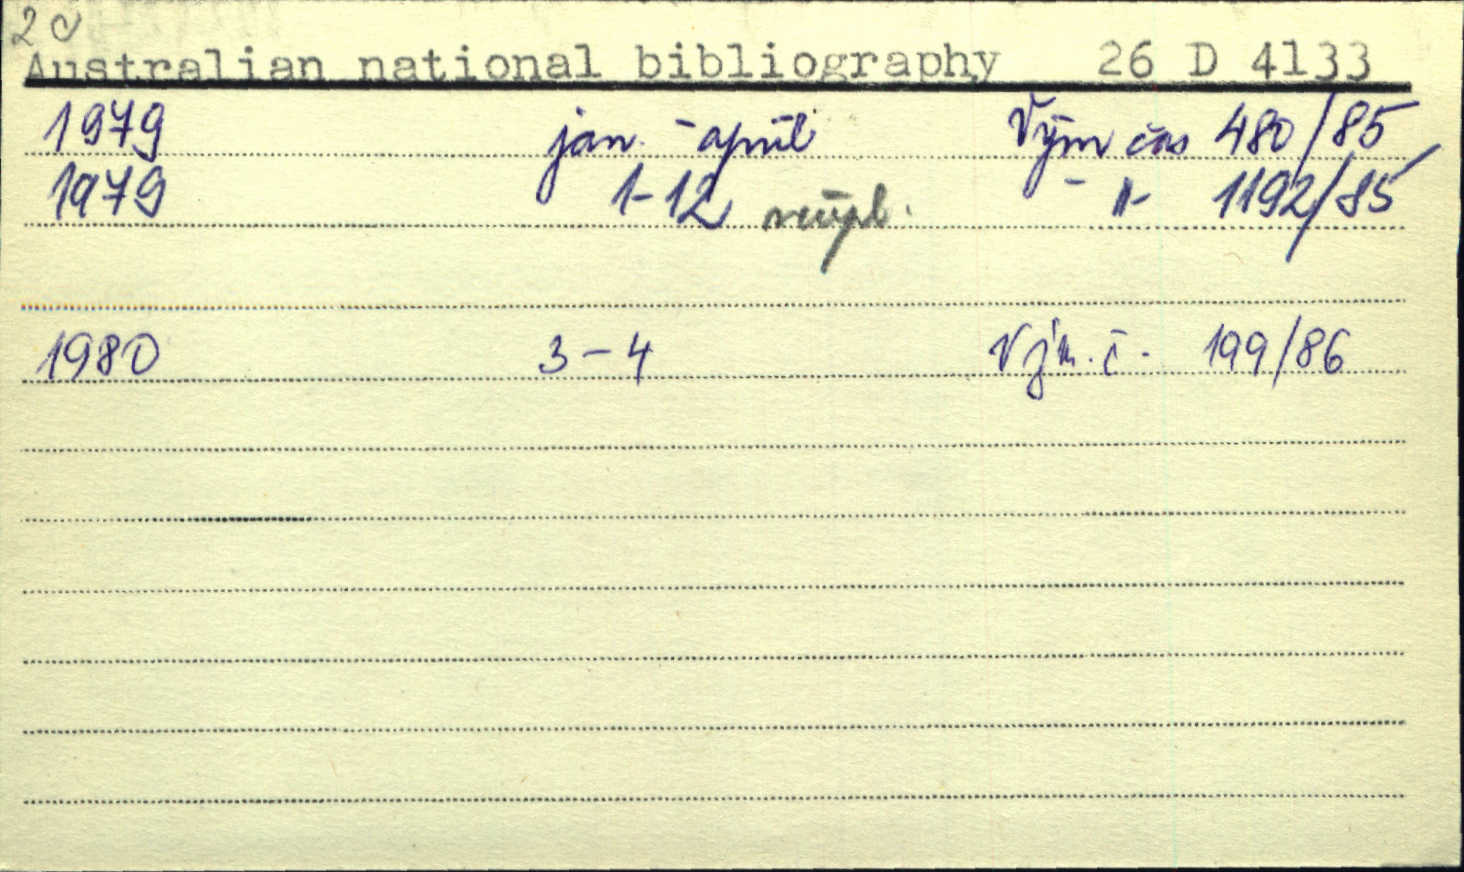 2 c
Australian national bibliography 26 D 4133
1979 jan. - apríl Vým čas 480/85
1979 1-12 neúpl. - " - 1192/85
1980 3-4 Vým. č. 199/86